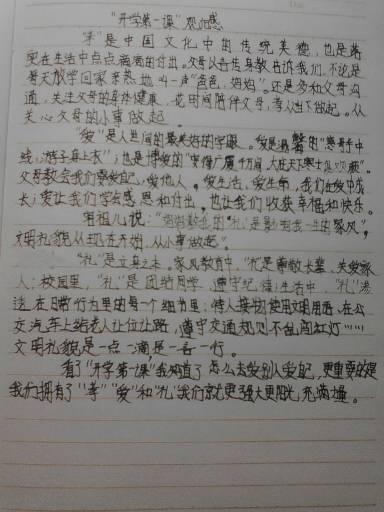 “开学第一课”观后感
“孝”是中国文化中的传统美德，也是落
实在生活中点点滴滴的付出。父母以言传身教告诉我们，不论是
每天放学回家亲热地叫一声“爸爸、妈妈”。还是多和父母沟
通，关注父母的身体健康，花时间陪伴父母，孝从当下做起。从
关心父母的小事做起。
“爱”是人世间的最美好的字眼。爱是温馨的“慈母手中
线，游子身上衣”；也是博爱的“安得广厦千万间，大庇天下寒士俱欢颜”。
父母教会我们要爱自己，爱他人。爱生活，爱生命，我们在爱中成
长；爱让我们学会感恩和付出，也让我们收获幸福和快乐。
“礼”是影响我一生的家风，
文明礼貌从现在开始，从小事做起。
“礼”是立身之本，家风教育中，“礼”是尊敬长辈、关爱家
人；校园里，“礼”是团结同学，遵守纪律；生活中“礼”渗
透在日常行为里的每一个细节里：待人接物使用文明用语，在公
交汽车上给老人让位让路，遵守交通规则不乱闯红灯……
文明礼貌是一点一滴，是一言一行。
看了“开学第一课”我知道了怎么去爱别人爱自己，更重要的是
我们拥有了“孝”“爱”和“礼”我们就更强大更阳光，充满